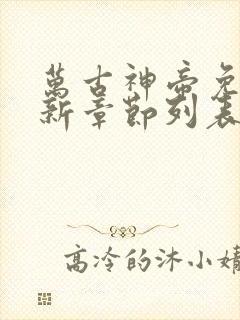 萬古神帝免
新章節列表
高冷的沐小婧